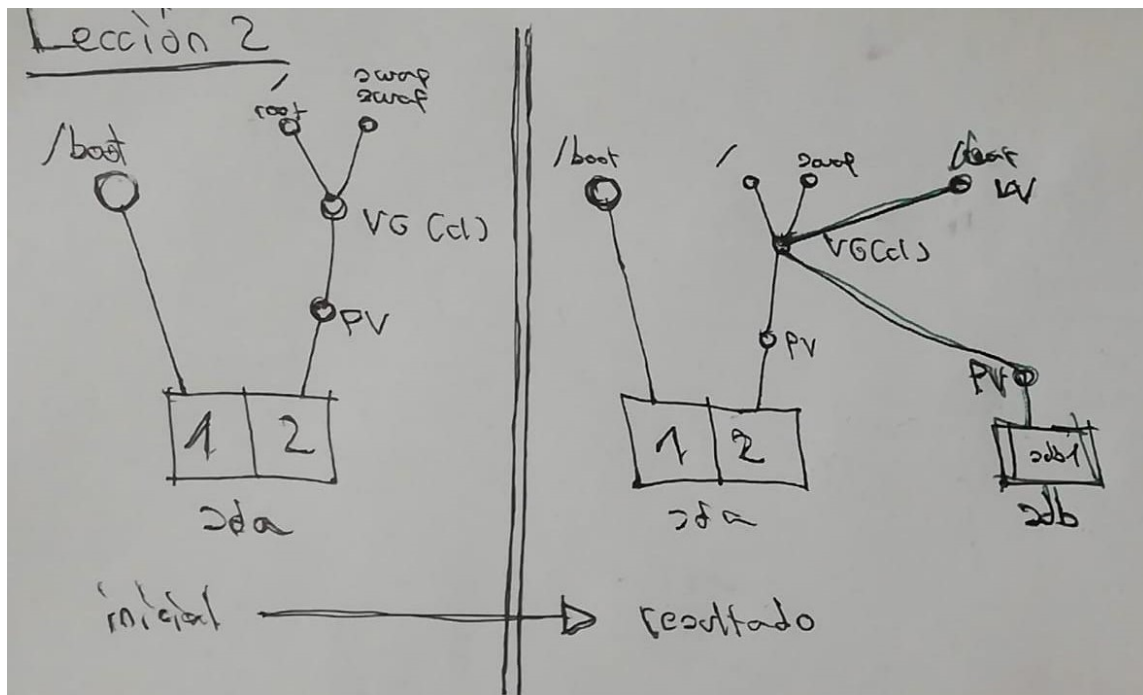 Lección 2
/
root
swap
swap
/boot
VG (cl)
PV
1 2
sda
inicial
/boot
/
swap
VG(cl)
PV
1 2
sda
PV
sdb1
sdb
resultado